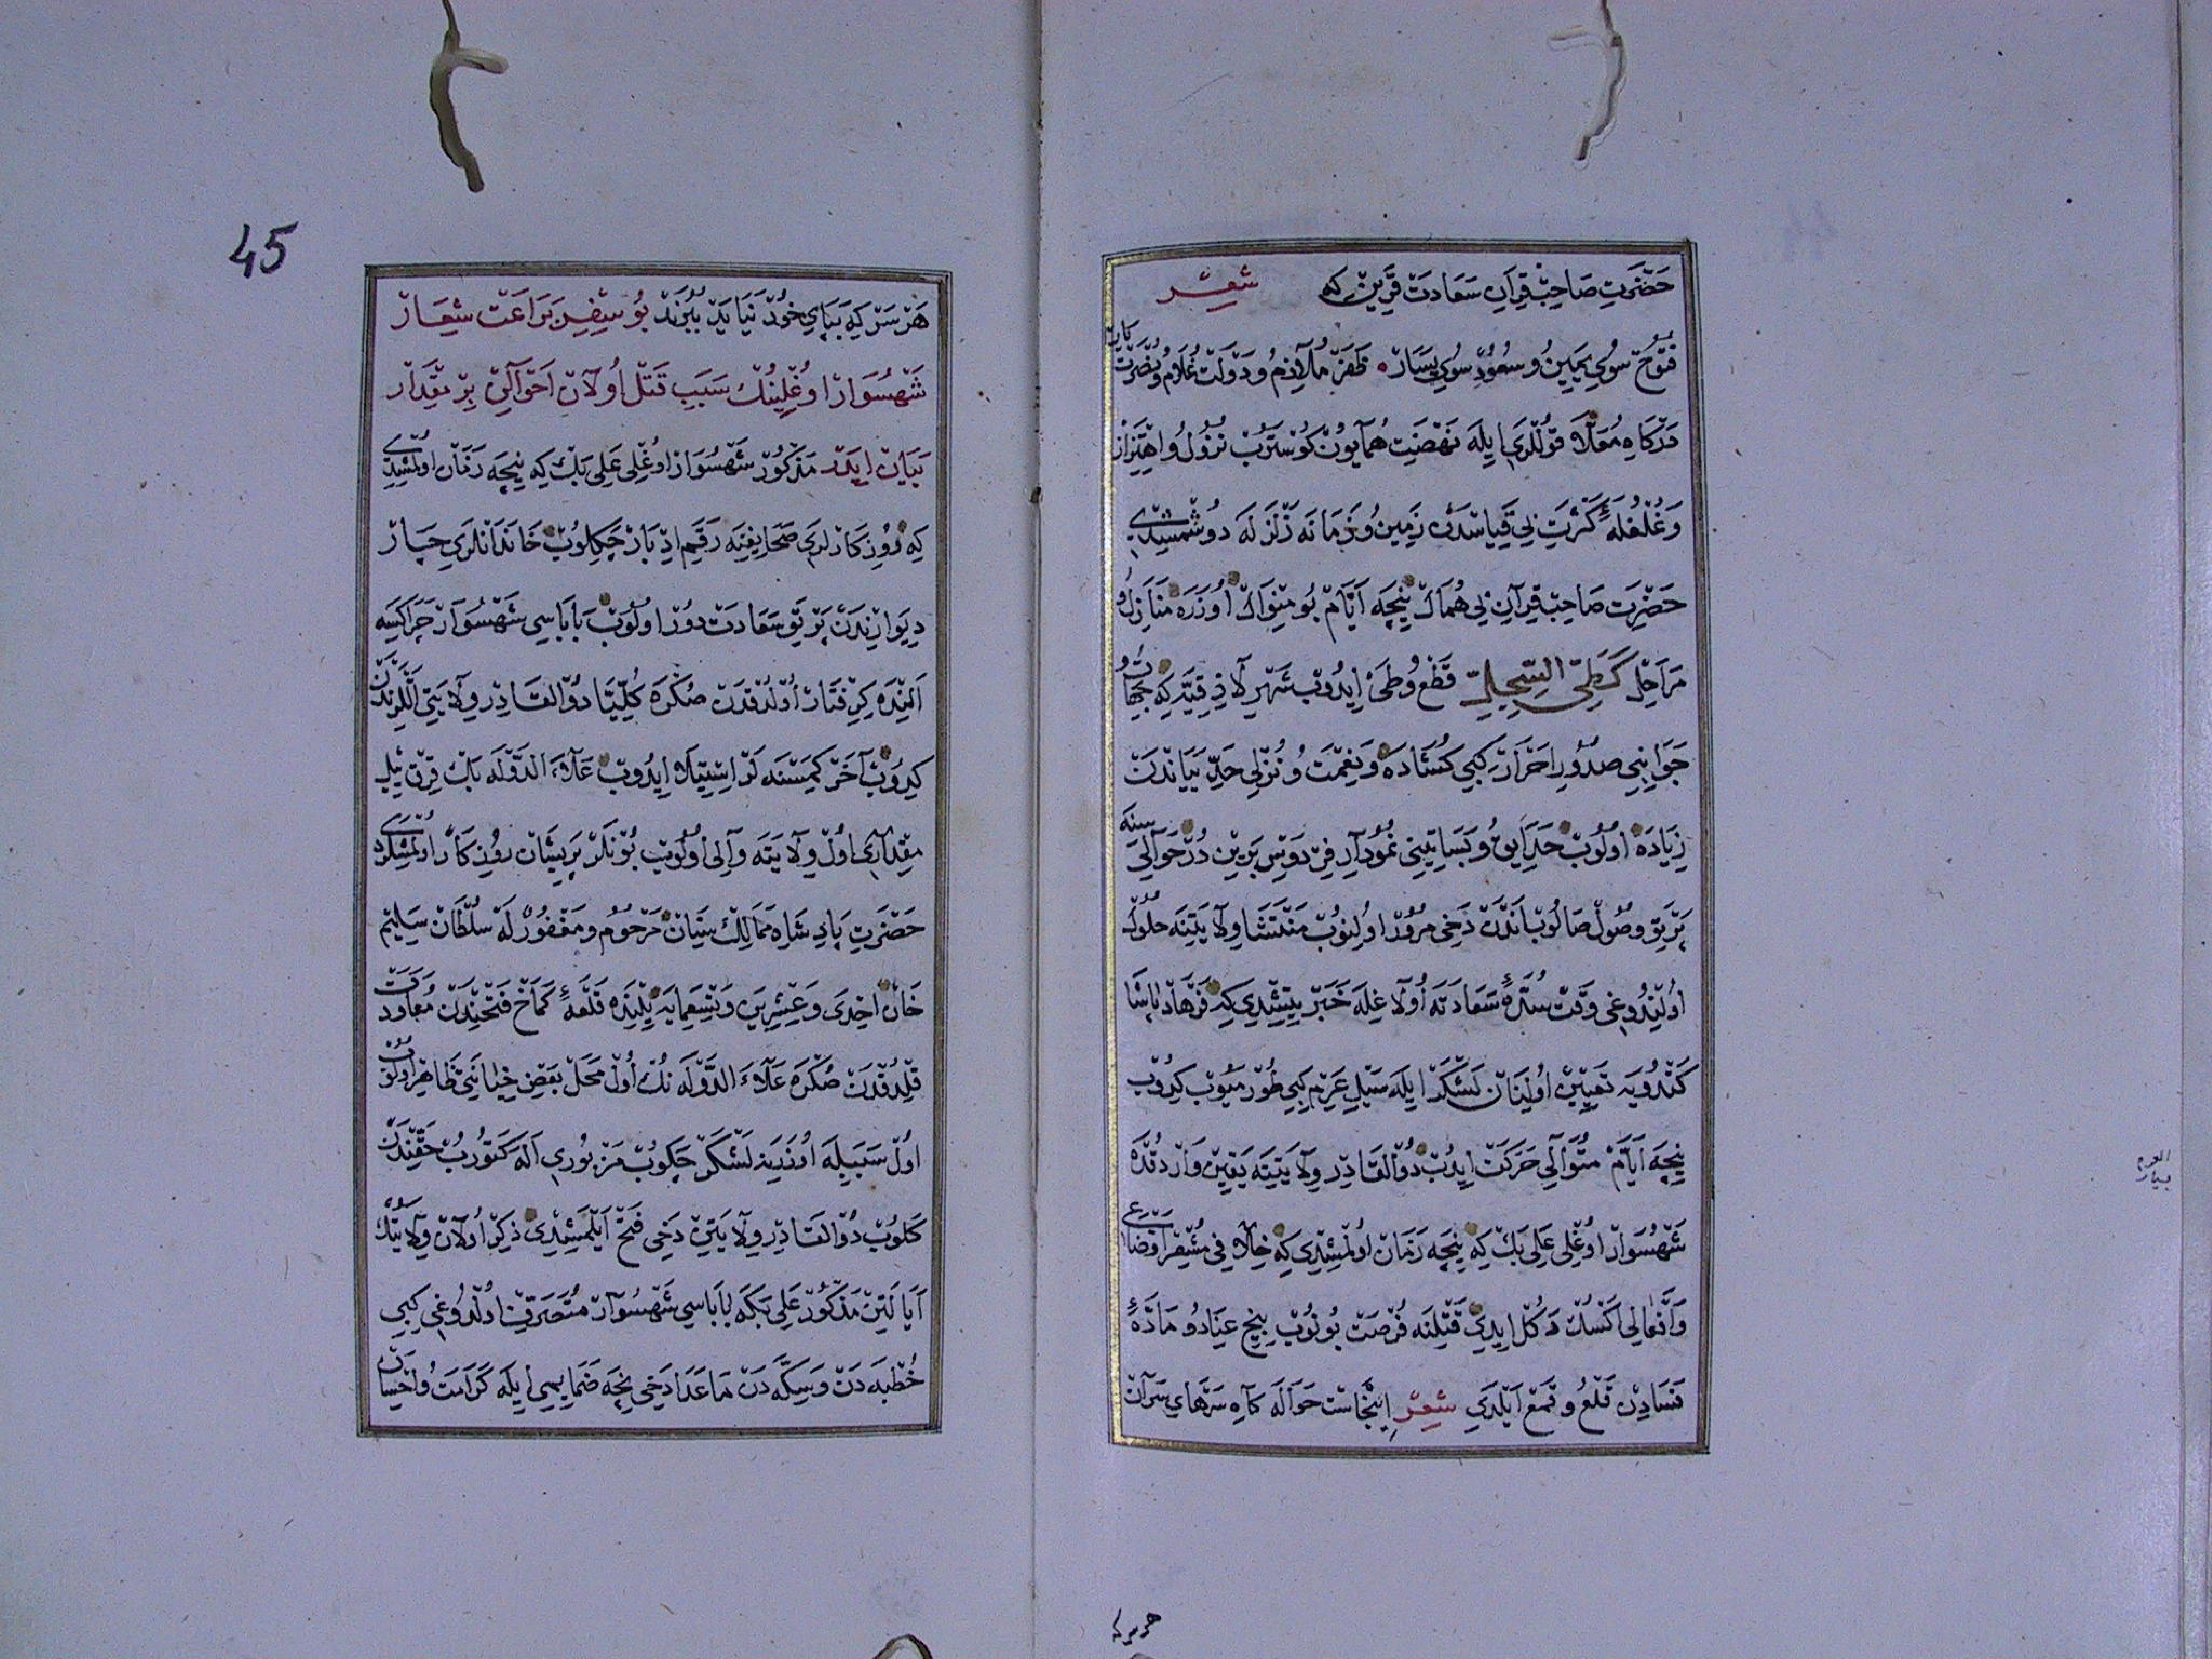 حَضْرَتِ صَاحِبْ قِرَانِ سَعَادَتْ قَرِينْ كه شعر
فُتُوحْ سُويِ يَمِينُ و سُعُودْ سُويِ يَسَارْ ظَفَرْ مُلَازِمُ و دَوْلَتْ غُلَامُ و نُصْرَتْ يَارْ
دَرْكَاهِ مُعَلَّا قُولْلَرِي ايلَه نَهْضَتِ هُمَايُونْ كُوسْتَرُبْ نُزُولُ و اهْتِزَازْ
وَ غُلْغُلَهٔ كَثْرَتِ بِي قِيَاسْدَنْ زَمِينُ و زَمَانَه زَلْزَلَه دُوشْمِشِيدِي
حَضْرَتِ صَاحِبْ قِرَانِ بِي هُمَالْ نِيچَه ايَّامْ بُو مِنْوَالْ اوُزَرَه مَنَازِلُ و
مَرَاحِلِ كَطَيِّ السِّجِلِّ قَطْعُ و طَيّ ايدُوبْ شَهْرِ لَاذِقِيَّه كِه جِهَاتُ و
جَوَانِبِي صُدُورِ احْرَارْ كِبِي كُشَادَه وَ نِعْمَتُ و نُزْلِي حَدِّ بَيَانْدَنْ
زِيَادَه اوُلُوبْ حَدَايِقُ و بَسَاتِينِي نُمُودَارِ فِرْدَوْسِ بَرِينْ دُرْ حَوَالِيسِنَه
پَرْتَوِ وُصُولْ صَالُوبْ انْدَنْ دَخِي مُرُورْ اوُلِنُوبْ مَنْتَشَا وِلَايَتِنَه حُلُولْ
اوُلِنْدُوغِي وَقْتْ سُدَّهٔ سَعَادَتَه اوُلَاغِلَه خَبَرْ يِتِشْدِي كِه فَرْهَادْ پَاشَا
كَنْدُويَه تَعْيِينْ اوُلِنَانْ لَشْكَرْ ايلَه سَيْلِ عَرِمْ كِبِي طُورْمَيُوبْ كِيدُوبْ
نِيچَه ايَّامْ مُتَوَالِي حَرَكَتْ ايدُبْ ذُو القَادِرْ وِلَايَتِنَه يَقِينْ وَارْدُقْدَه
شَهْسُوَارْ اوُغْلِي عَلِي بَكْ كِه نِيچَه زَمَانْ اوُلْمِشِدِي كِه خِلَافِ مُشْعِرْ اوْضَاعِي
وَ افْعَالِي اكْسُكْ دَكُلْ ايدِي قَتْلِنَه فُرْصَتْ بُولُوبْ بِيخِ عِنَادُ و مَادَّهٔ
فَسَادِنْ قَلْعُ و قَمْعْ ايلَدِي شِعْر اينْجَاسْتْ حَوَالَه كَاهِ سَرْهَايِ سَرَانْ
هر سر كه
45
هَرْ سَرْ كِه بَپَايِ خُودْ نَيَايَدْ بِبُرَنْدْ بُو سِفِرِ بَرَاعَتْ شِعَارْ
شَهْسُوَارْ اوُغْلِينُكْ سَبَبِ قَتْلْ اوُلَانْ احْوَالِنْ بِرْ مِقْدَارْ
بَيَانْ ايدَرْ مَذْكُورْ شَهْسُوَارْ اوُغْلِي عَلِي بَكْ كِه نِيچَه زَمَانْ اوُلْمِشِيدِي
كِه رُوزِكَارْلَرِي صَحَايِفِنَه رَقَمِ ادْبَارْ چَكِلُوبْ خَانَدَانْلَرِي جِدَارْ
دِيوَارِنْدَنْ پَرْتَوِ سَعَادَتْ دُورْ اوُلُوبْ بَابَاسِي شَهْسُوَارْ چَرَاكِسَه
الِنْدَه كِرِفْتَارْ اوُلْدُقْدَنْ صُكْرَه كُلِّيًّا ذُو القَادِرْ وِلَايَتِي اللَّرِنْدَنْ
كِيدُوبْ آخَرْ كِمْسَنَه لَرْ اسْتِيلَا ايدُوبْ عَلَاءَ الدَّوْلَه بَكْ قِرْقْ ييلْ
مِقْدَارِي اوُلْ وِلَايَتَه وَالِي اوُلُوبْ بُونْلَرْ پَرِيشَانْ رُوزِكَارْ اوُلْمِشْلَرْدِي
حَضْرَتِ پَادِشَاهِ مَمَالِكْ سِتَانْ مَرْحُومْ و مَغْفُورٌ لَه سُلْطَانْ سَلِيمْ
خَانْ احْدَى وَ عِشْرِينَ وَ تِسْعِمِايَه ييلِنْدَه قَلْعَهٔ كَمَاخْ فَتْحِنْدَنْ مُعَاوَدَتْ
قِلْدُقْدَنْ صُكْرَه عَلَاءَ الدَّوْلَه نُكْ اوُلْ مَحَلْ بَعْضِ خِيَانَتِي ظَاهِرْ اوُلُوبْ
اوُلْ سَبَبِيلَه اوُزَرِينَه لَشْكَرْ چَكُوبْ مَزْبُورِي الَه كَتُورُبْ حَقِّنْدَنْ
كَلُوبْ ذُو القَادِرْ وِلَايَتِنْ دَخِي فَتْحْ ايلَمِشِيدِي ذِكِرْ اوُلَانْ وِلَايَتُكْ
ايَالَتِنْ مَذْكُورْ عَلِي بَكَه بَابَاسِي شَهْسُوَارْ مُتَصَرِّفْ اوُلْدُوغِي كِبِي
خُطْبَه دَنْ وَ سِكَّه دَنْ مَا عَدَا دَخِي نِيچَه ضَمَايِمِي ايلَه كَرَامَتُ وَ احْسَانْ